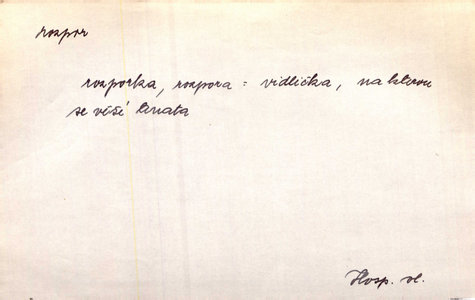 rozpor
rozporka, rozpora = vidlička, na kterou
se věší tenata
Hosp. sl.